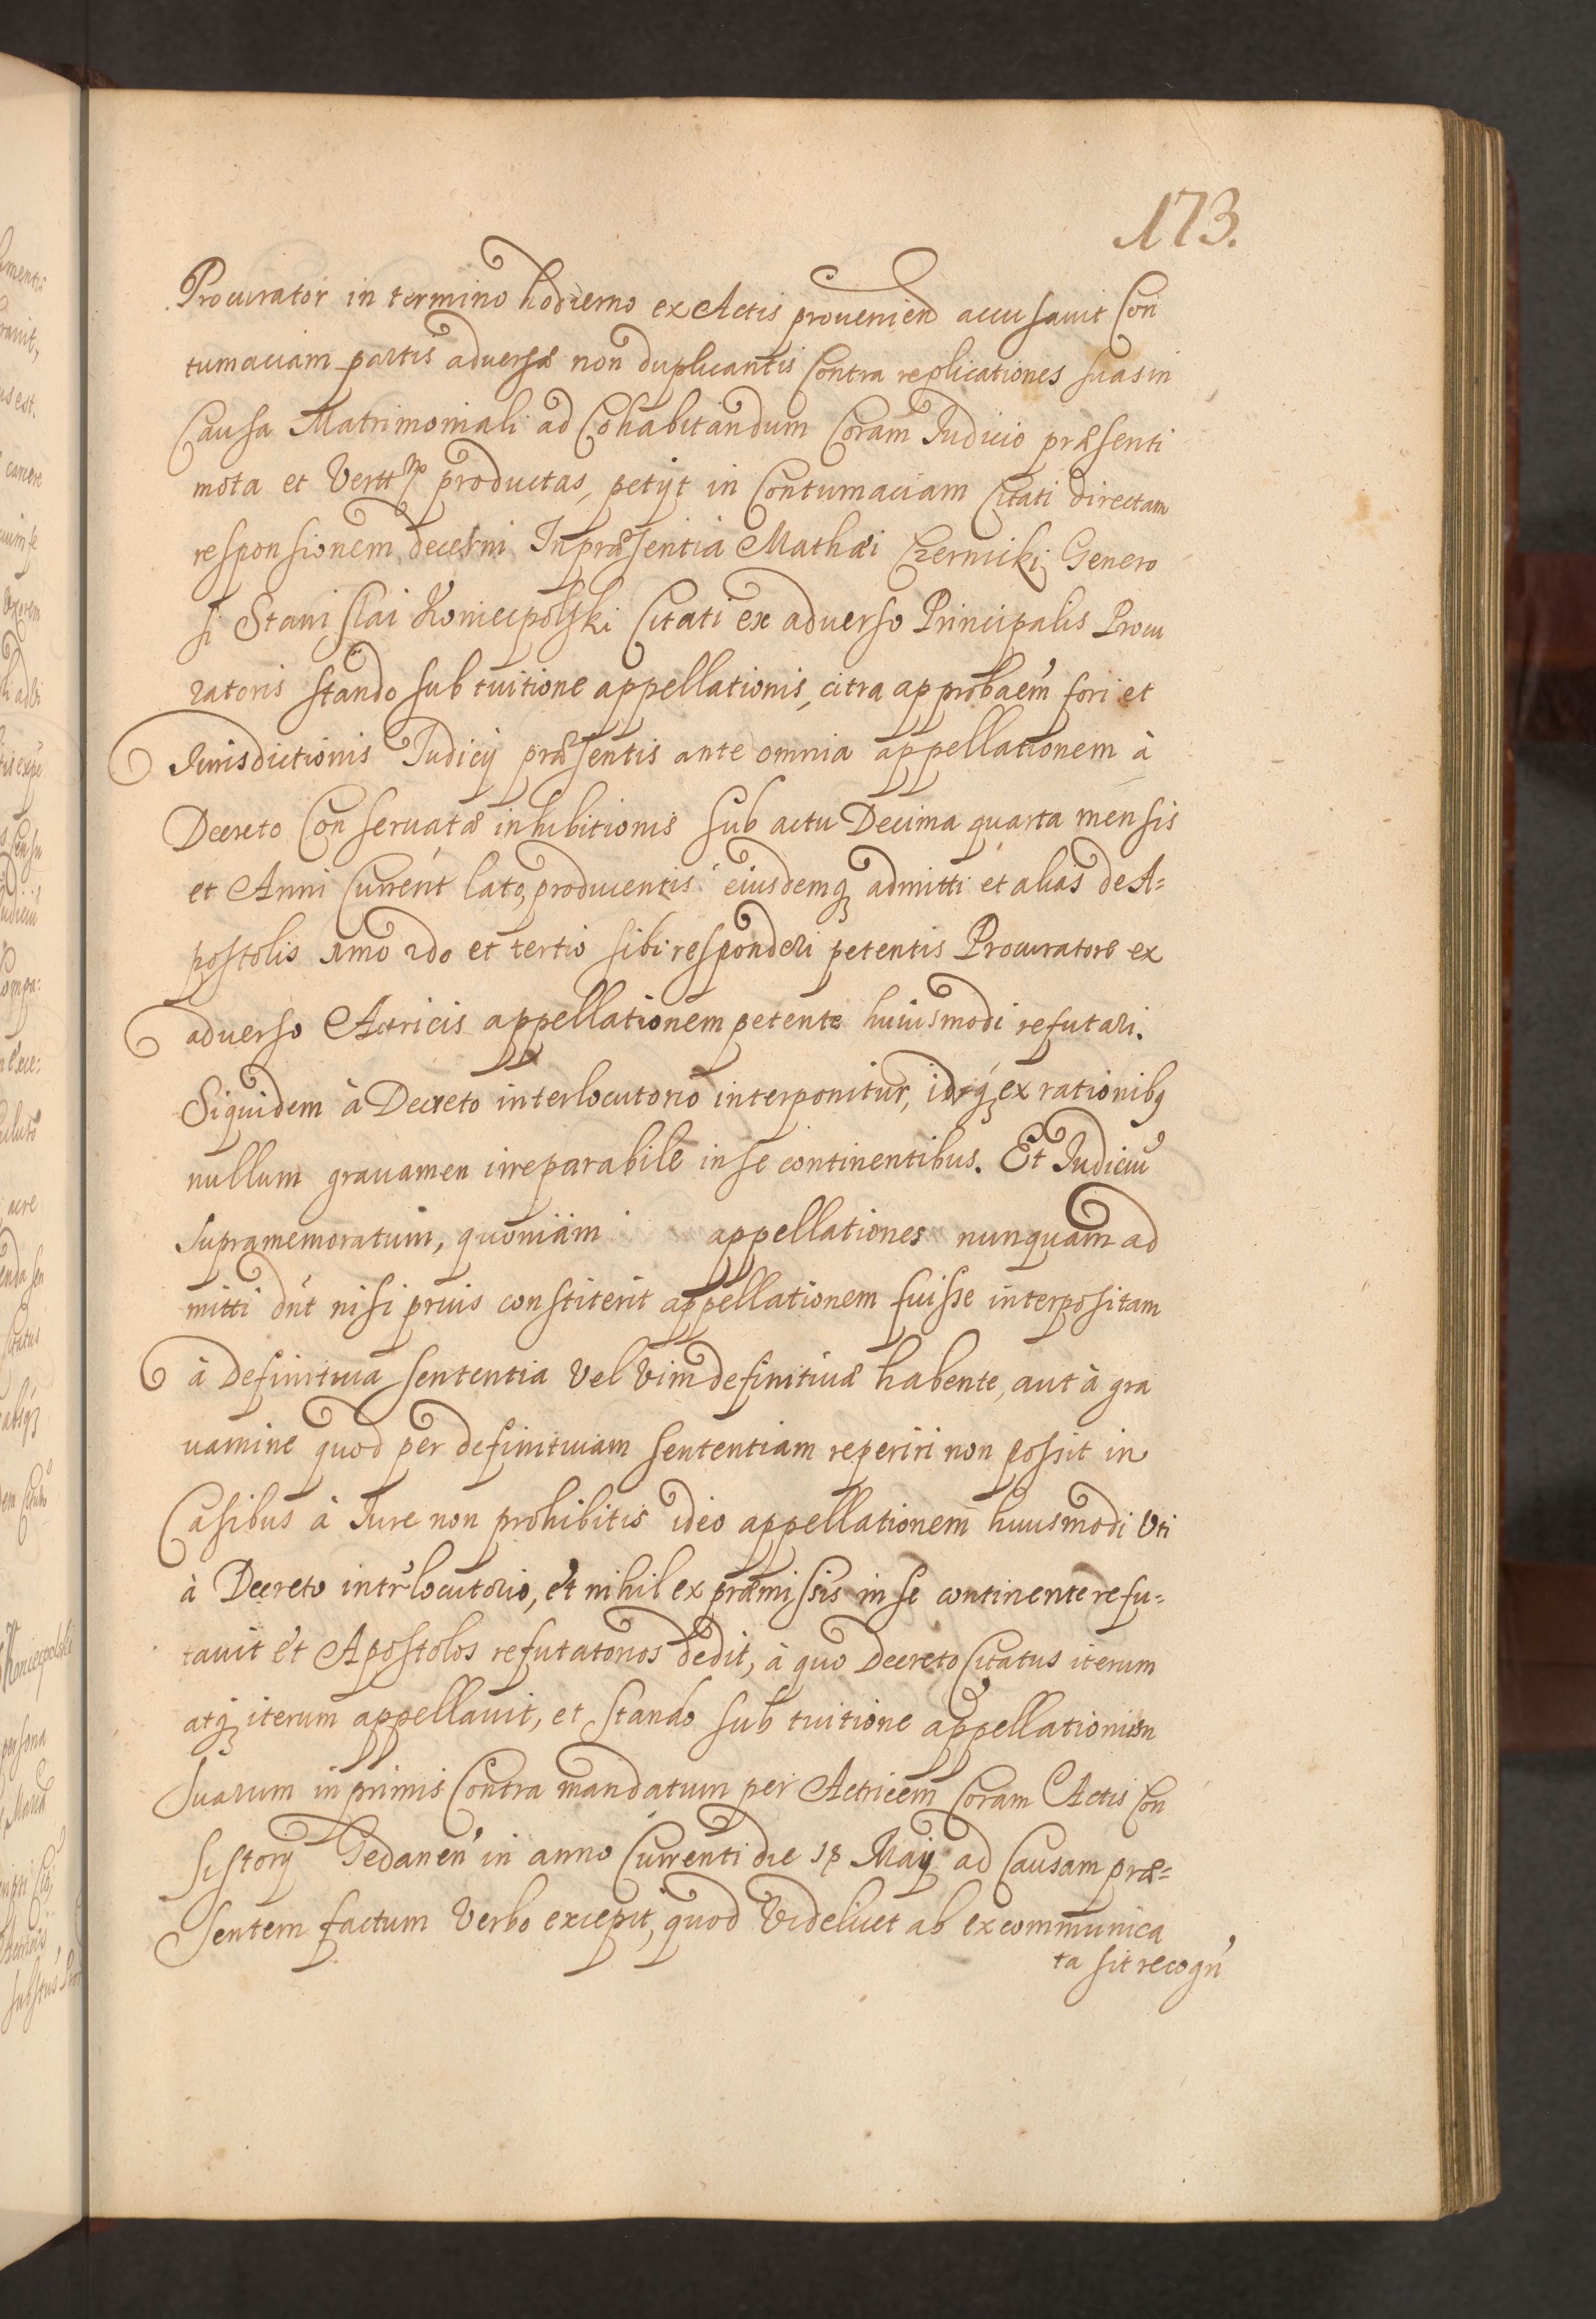 173.
Procurator in termino hodierno ex Actis provenien accusauit Con
tumaciam partis aduersæ non duplicantis Contra replicationes suas in
Causa Matrimoniali ad Cohabitandum Coram Judicio præsenti
mota et productas, petijt in Contumaciam Citati directam
responsionem decerni In præsentia Mathæi Czernicki Genero
si Stanislai Koniecpolski Citati ex aduerso Principalis Procu
ratoris stando sub tuitione appellationis, citra approbaem fori et
Jurisdictionis Judicij præsentis ante omnia appellationem à
Decreto Conseruatæ inhibitionis sub actu Decima quarta mensis
et Anni Current lato, producentis eiusdemq admitti et alias de A=
postolis 1mo 2do et tertio sibi responderi petentis Procuratore ex
aduerso Actricis appellationem petente huiusmodi refutari.
Siquidem à Decreto interlocutorio interponitur, idq ex rationibq
nullum grauamen irreparabile in se continentibus. Et Judiciu
supramemoratum, quoniam appellationes nunquam ad
mitti dnt nisi prius constiterit appellationem fuisse interpositam
à Definitiua sententia vel vim definitiuæ habente, aut à gra
uamine quod per definitiuam sententiam reperiri non possit in
Casibus à Jure non prohibitis ideo appellationem huiusmodi uti
à Decreto intrlocutorio, et nihil ex præmissis in se continente refu=
tauit et Apostolos refutatorios dedit, à quo Decreto Citatus iterum
atq iterum appellauit, et stando sub tuitione
suarum in primis Contra mandatum per Actricem Coram Actis Con
sistorij Gedanen in anno Currenti die 18 Maij ad Causam præ=
sentem factum Verbo excepit, quod Videlicet ab excommunica
ta sit recogn